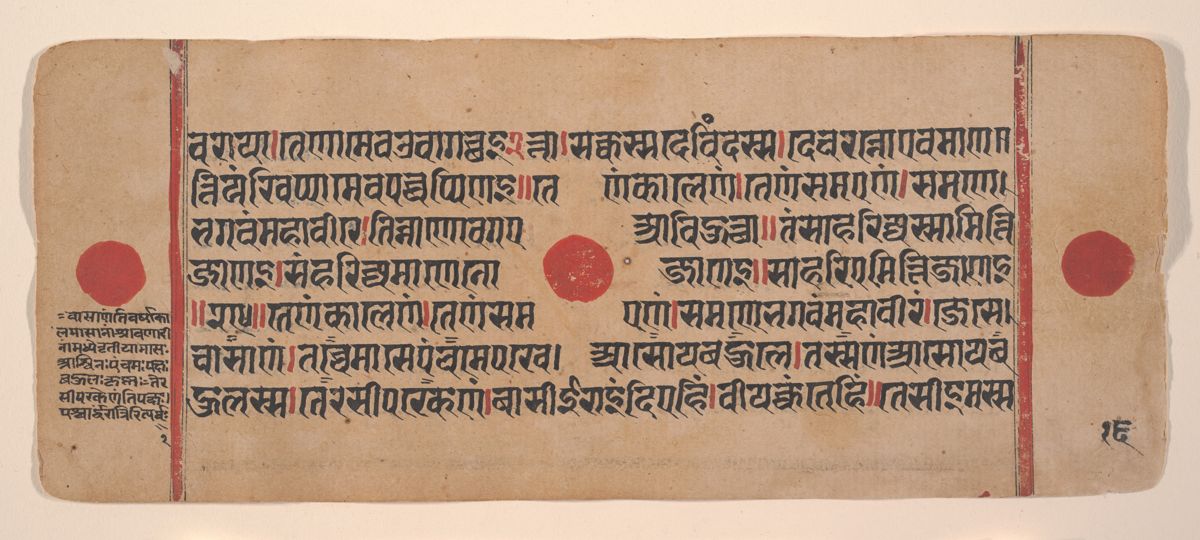 वराया।तेणामेवउवागच्छइ२त्ता।सक्कस्सदेविंदस्स।देवरन्नोएवमाण
त्तियंखिप्पामेवपच्चप्पिणइ॥ते णंकालेणं।तेणंसमएणं।समणे।
भगवंमहावीरे।तिन्नाणोवगए आविहुत्था॥तंसाहरिज्जस्सामित्ति
जाणइ।संहरिज्जमाणेनो जाणइ॥साहरिएमित्तिजाणइ
॥२९॥तेणंकालेणं।तेणंसम एणं।समणेभगवंमहावीरे।जेसे।
वासाणं।तच्चेमासेपंचमेपरके। आसोयबहुले।तस्सणंआसोयब
हुलस्स।तेरसीपरकेणं।बासीईराइंदिएहिं।वीयक्कंतेहिं॥तेसीइमस्स
=वासाणंतिवर्षाका
लमासानांश्रावणादी
नांमध्येतृतीयोमासः
आश्विनःपंचमःपक्षः
बहुलःकृष्णःतेर
सीपरकेणंतिपक्षः।
पश्चार्द्धरात्रिरित्यर्थः
२
१६